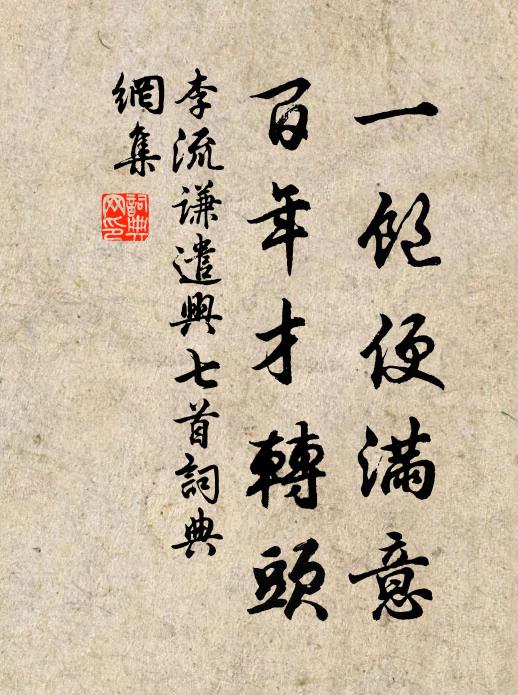 一飽便滿意
百年才轉頭
李流謙遣興七首詞典
網集
詞典網印